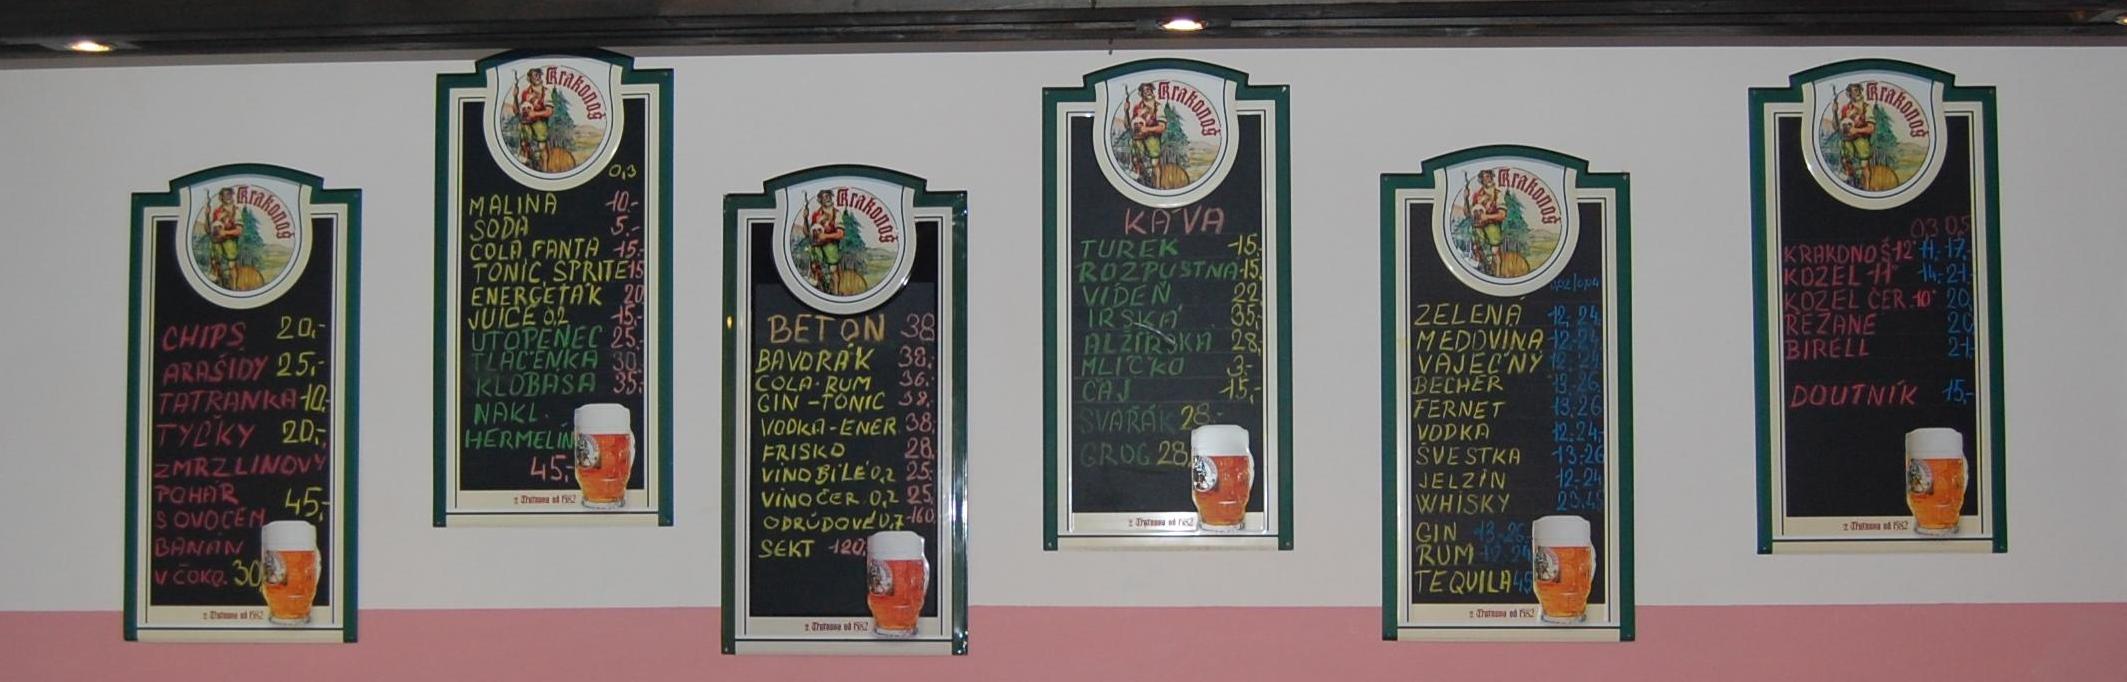 Krakonoš
CHIPS 20,-
ARAŠÍDY 25,-
TATRANKA 10,-
TYČKY 20,-
ZMRZLINOVÝ
POHÁR
S OVOCEM 45,-
BANÁN
V ČOKO. 30
z Trutnova od 1582
Krakonoš
0,3
MALINA 10,-
SODA 5,-
COLA FANTA 15,-
TONIC, SPRITE 15
ENERGEŤÁK 20
JUICE 0,2 15,-
UTOPENEC 25,-
TLAČENKA 30,-
KLOBÁSA 35,-
NAKL.
HERMELÍN
45,-
z Trutnova od 1582
Krakonoš
BETON 38
BAVORÁK 38,-
COLA-RUM 36,-
GIN-TONIC 38,-
VODKA-ENER. 38,-
FRISKO 28,
VÍNO BÍLÉ 0,2 25,
VÍNO ČER. 0,2 25,
ODRŮDOVÉ 0,7 160,
SEKT 120,
z Trutnova od 1582
Krakonoš
KÁVA
TUREK 15,-
ROZPUSTNÁ 15,
VÍDEŇ 22,
IRSKÁ 35,-
ALŽÍRSKÁ 28,
MLÍČKO 3,-
ČAJ 15,-
SVAŘÁK 28,-
GROG 28,
z Trutnova od 1582
Krakonoš
0,02/0,04
ZELENÁ 12,-24,
MEDOVINA 12,-24
VAJEČNÝ 12,-24
BECHER 13,-26
FERNET 13,-26
VODKA 12,-24,
ŠVESTKA 13,-26
JELZÍN 12,-24
WHISKY 23,-45
GIN 13,-26,-
RUM 12,-24
TEQUILA 45
z Trutnova od 1582
Krakonoš
0,3 0,5
KRAKONOŠ 12° 11,- 17,-
KOZEL 11° 14,- 21,-
KOZEL ČER. 10° 20,
ŘEZANÉ 20
BIRELL 21,-
DOUTNÍK 15,-
z Trutnova od 1582